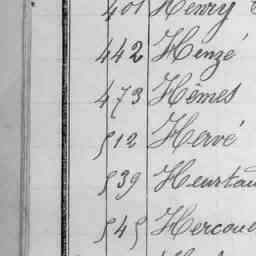 401 Henry
442 Henzé
473 Hêmes
512 Hervé
539 Heurtau
545 Hercoue